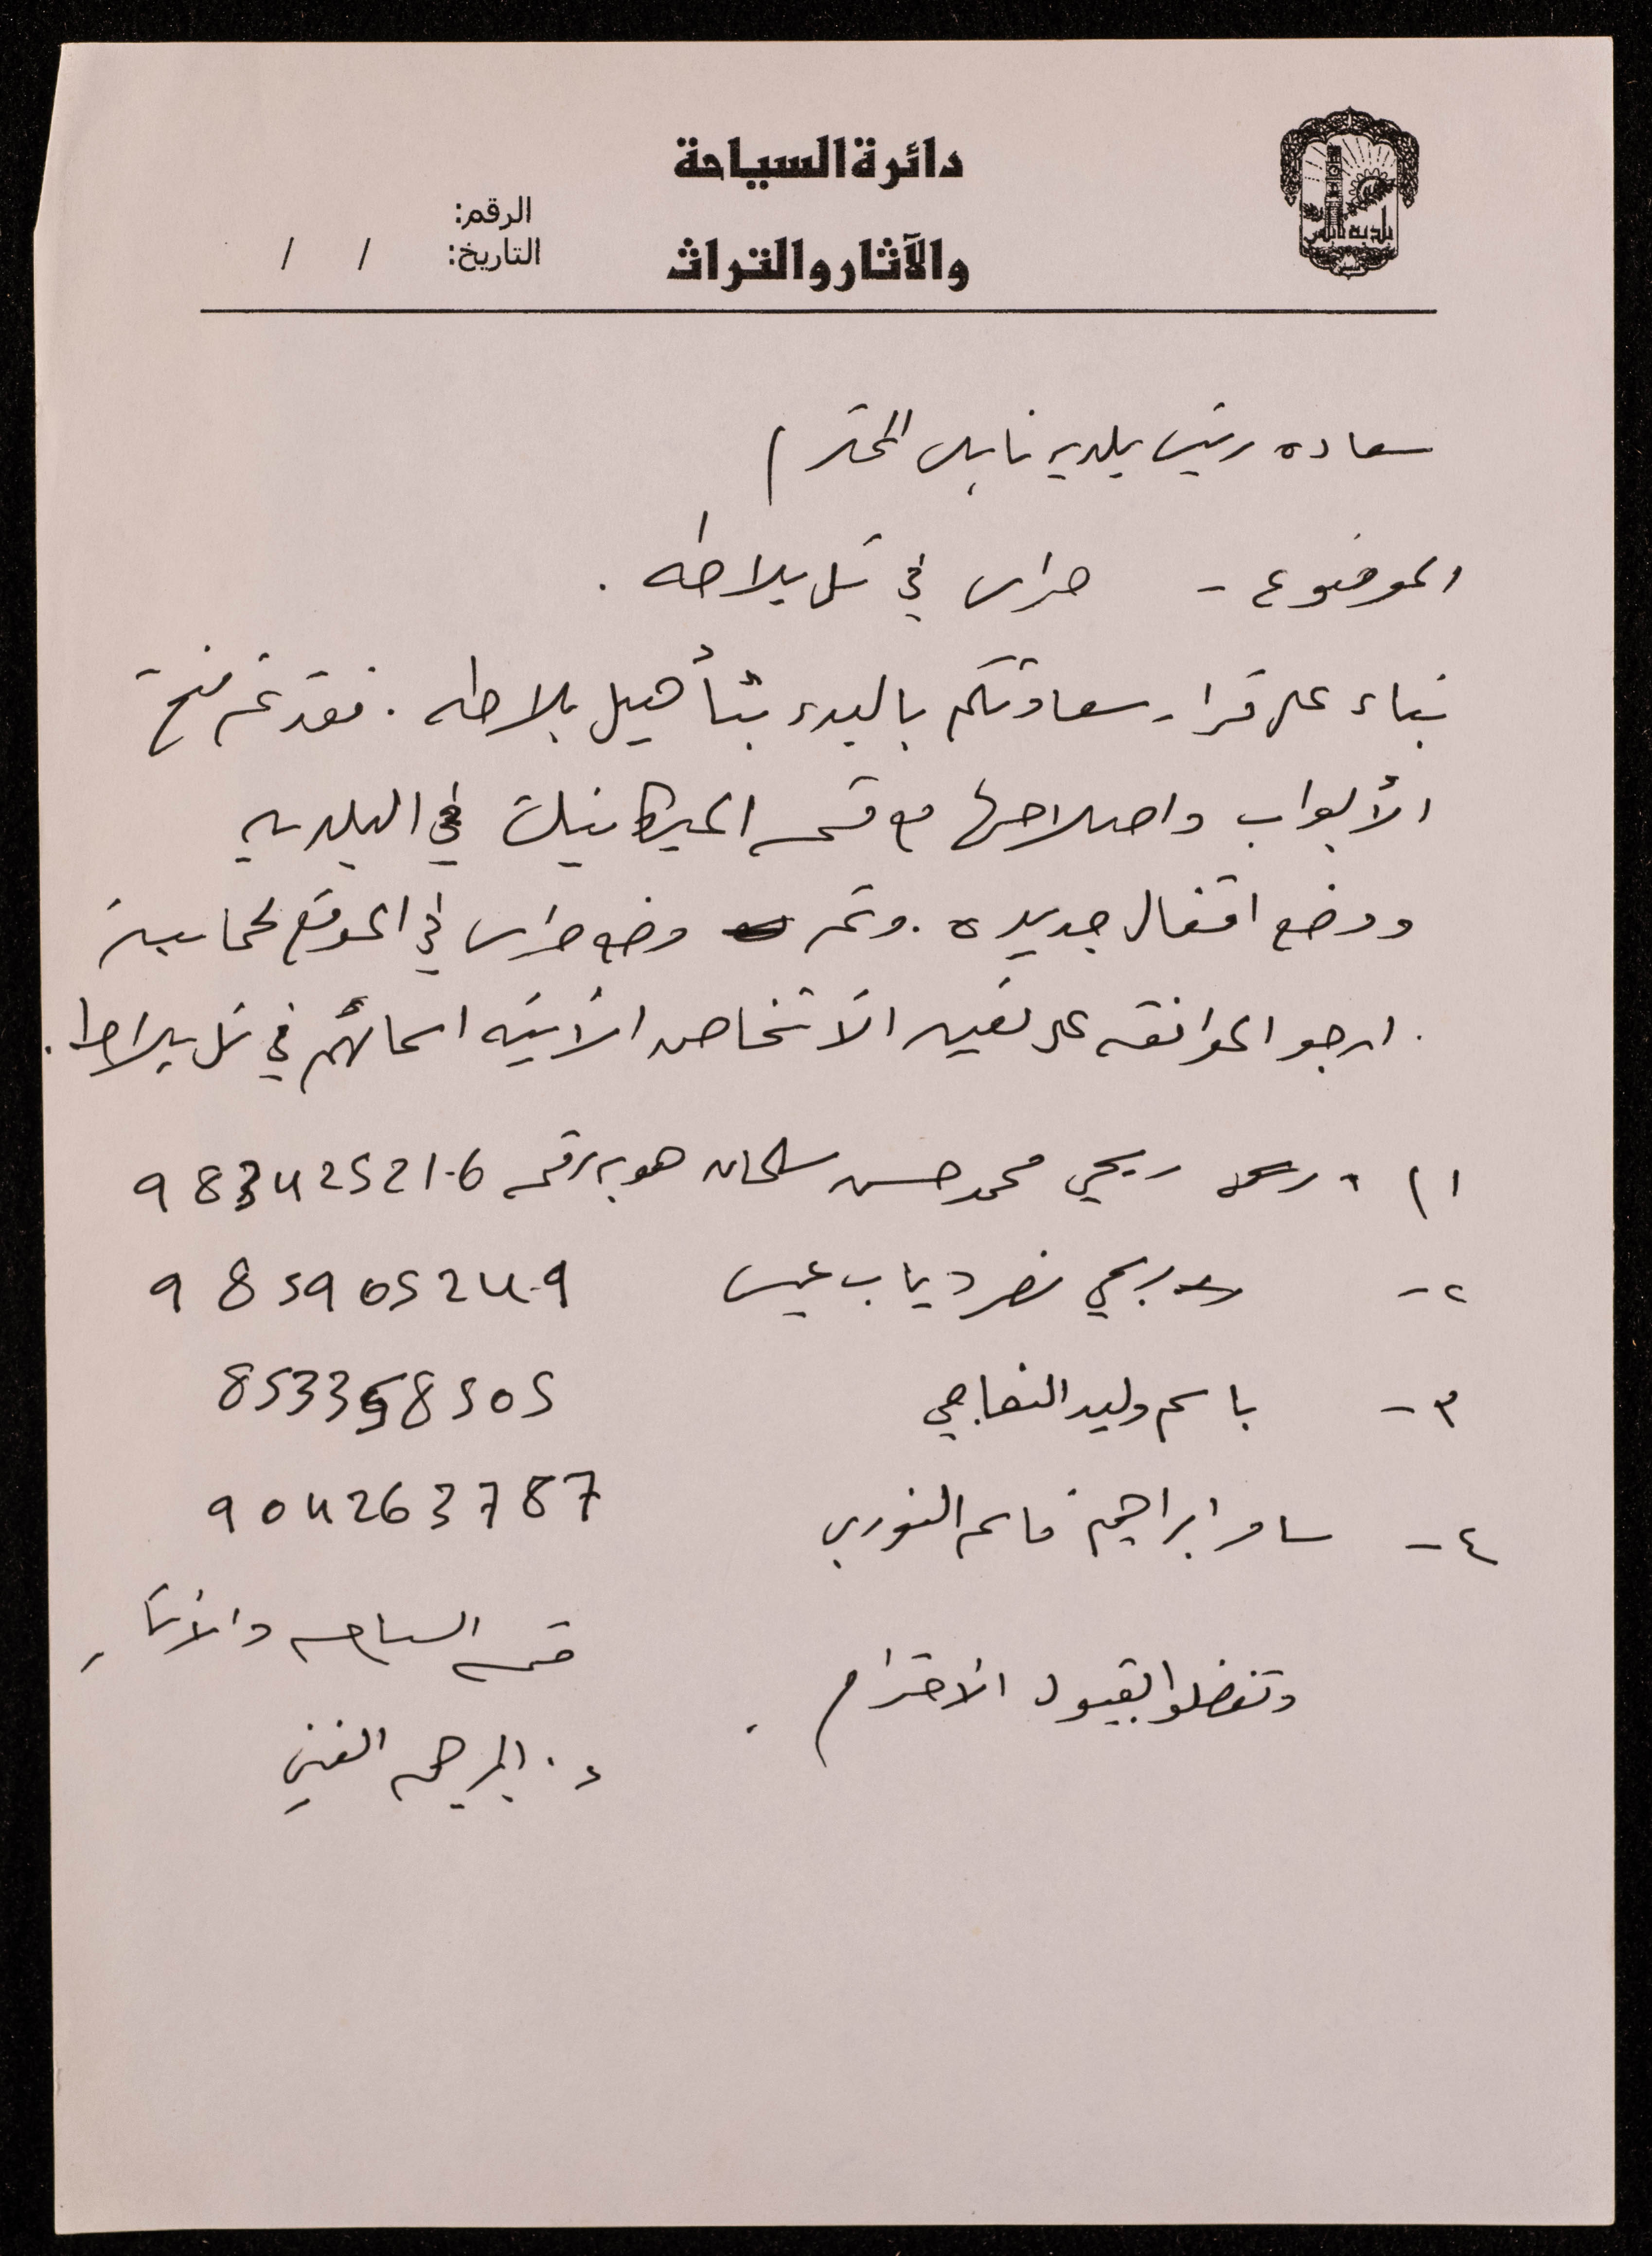 دائرة السياحة
والآثار والتراث
الرقم:
التاريخ: / /
بلدية نابلس
سعاده رئيس بلديه نابلس المحترم
الموضوع - حراس في تل بلاطه .
بناء على قرار سعادتكم بالبدء بتأهيل بلاطه . فقد تم فتح
الأبواب واصلاحها مع قسم الميكانيك في البلديه
ووضع اقفال جديده . وتم وضع حراس في الموقع لحمايته
. ارجو الموافقه على تعيين الاشخاص الآتيه اسمائهم في تل بلاطه .
١) ربحي محمد حسن سلمان هويه رقم 98342521-6
٢- ربحي نصر دياب عيسى 98590524-9
٣- باسم وليد النعاجي 853358505
٤- سامر ابراهيم قاسم النوري 904263787
قسم السياحه والآثار
وتفضلوا بقبول الاحترام .
د. ابراهيم الفني